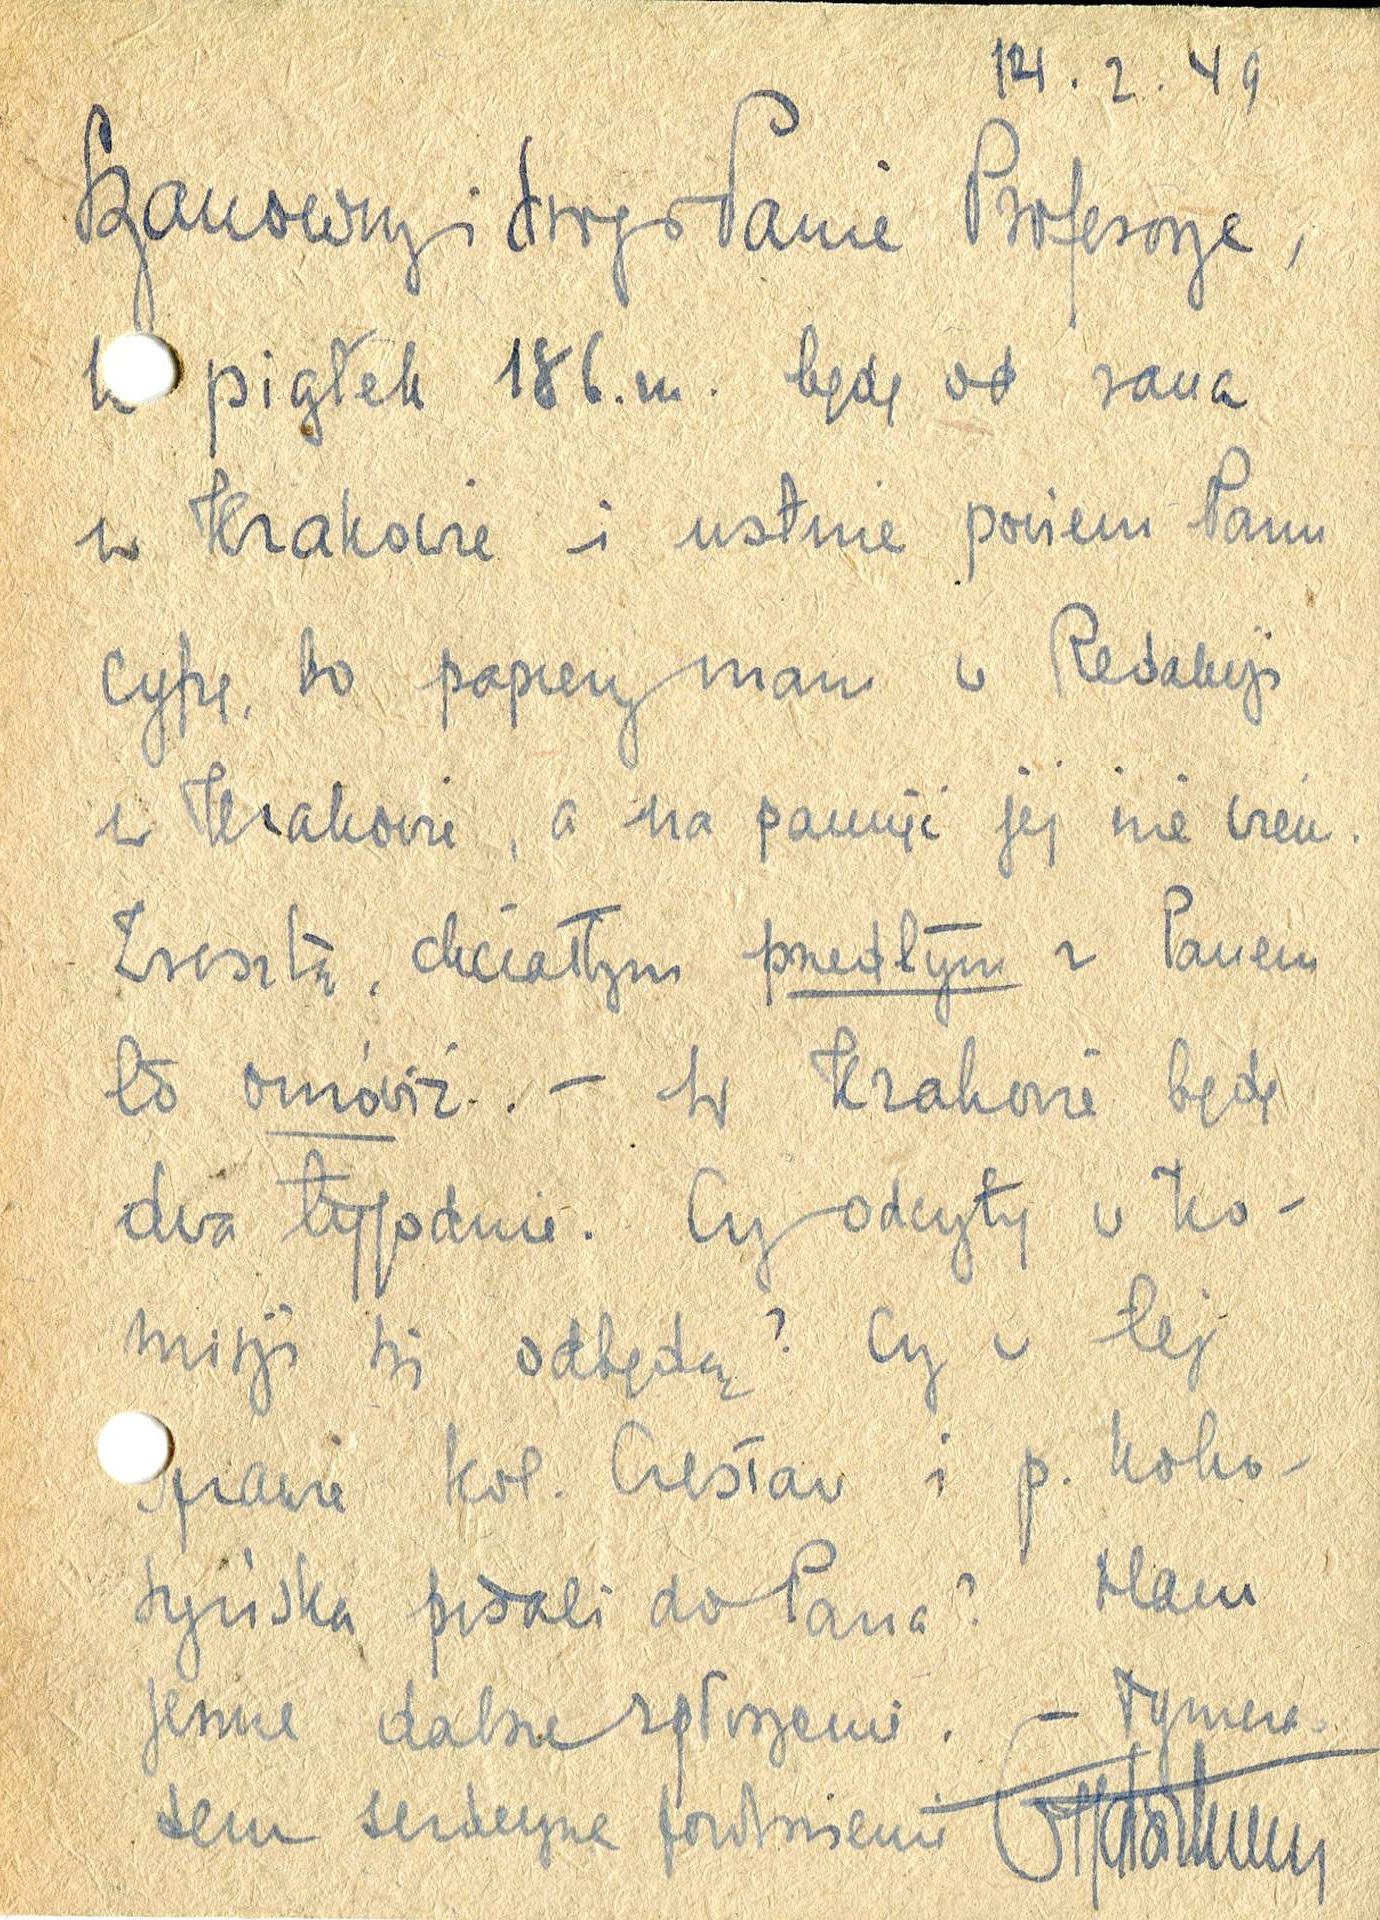 14.2.49
Szanowny i drogi Panie Profesorze,
W piątek 18 b.m. będę od rana
w Krakowie i ustnie powiem Panu
cyfrę, bo papiery mam w Redakcji
w Krakowie, a na pamięć jej nie wiem.
Zresztą, chciałbym przedtym z Panem
to omówić. – W Krakowie będę
dwa tygodnie. Czy odczyty w Ko-
misji się odbędą? Czy w tej
sprawie kol. Czesław i p. Koho-
tyńska pisali do Pana? Mam
jeszcze dalsze zgłoszenie. – Tymcza-
sem serdeczne pozdrowienie